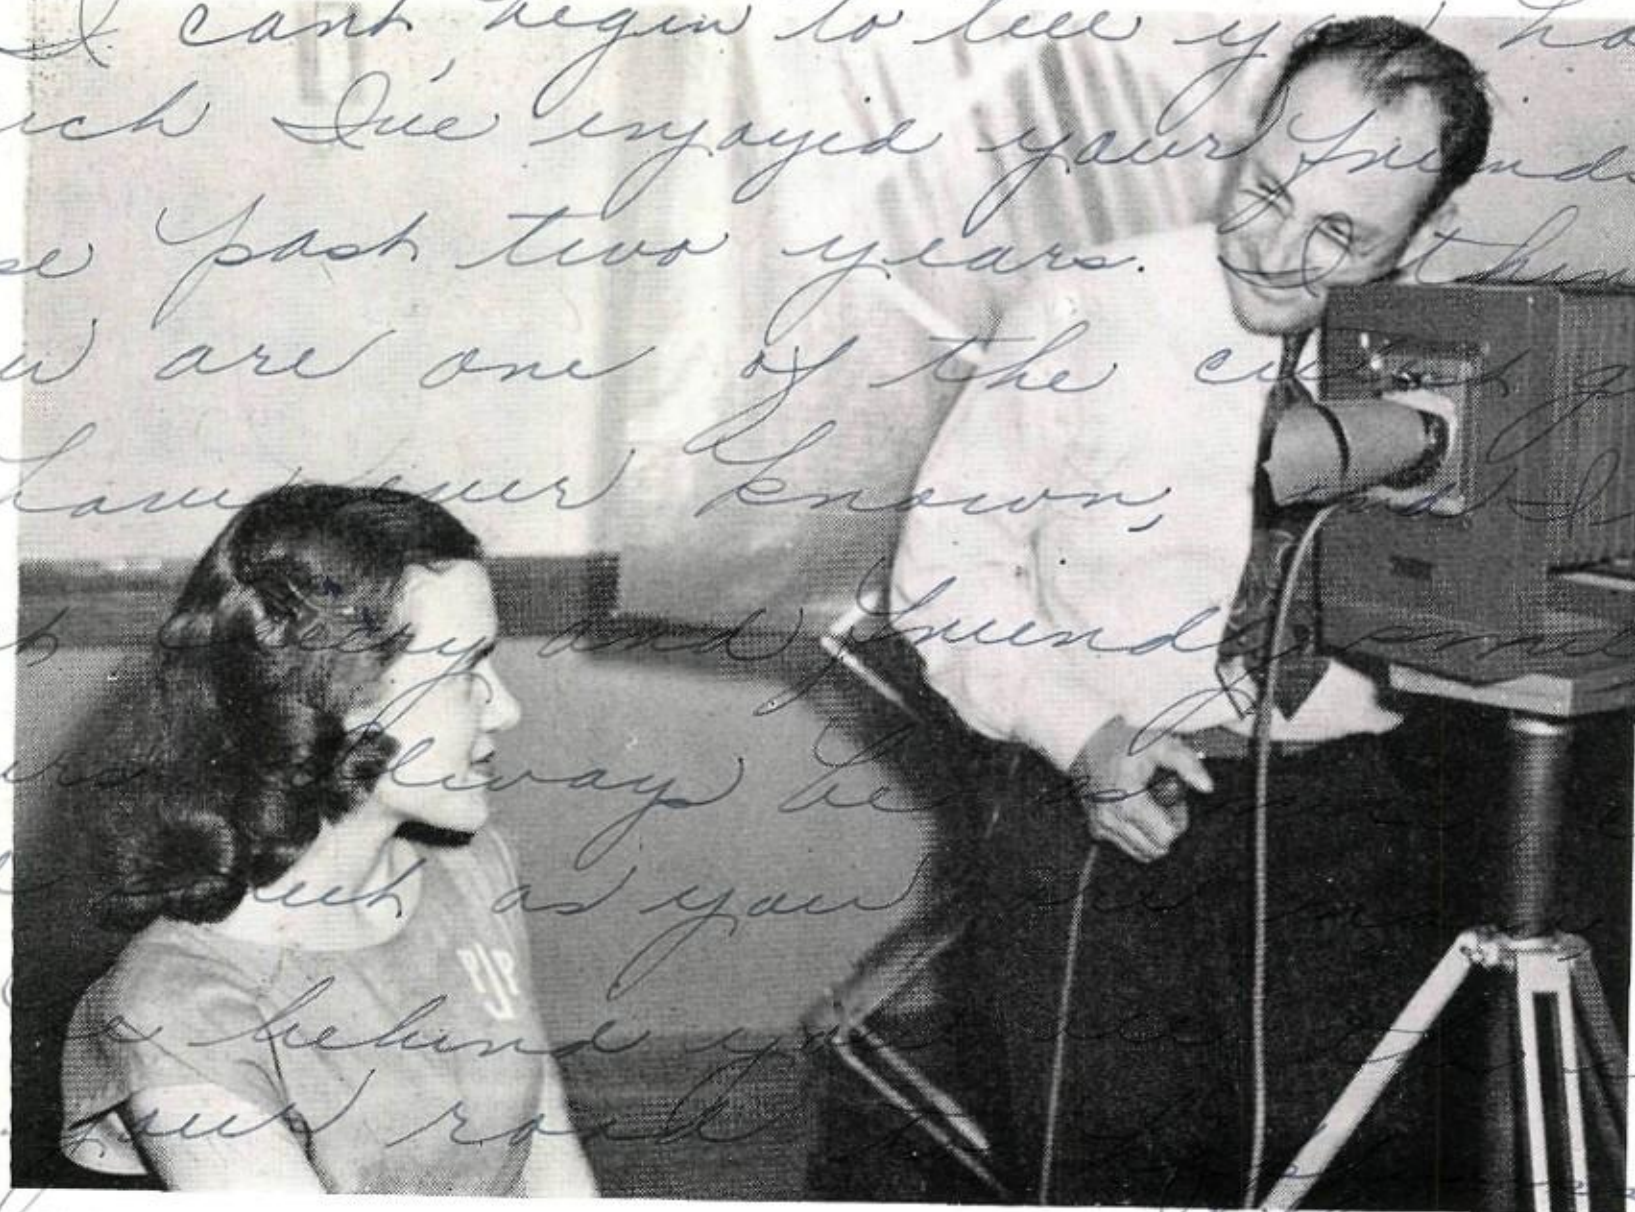 I can't begin to tell you ho
uch I've enjoyed your friends
se past two years. I thin
u are one of the cutest g
have ever known, and I
and friendly smile
always be as
much as you are now
behind you
your road
PJP